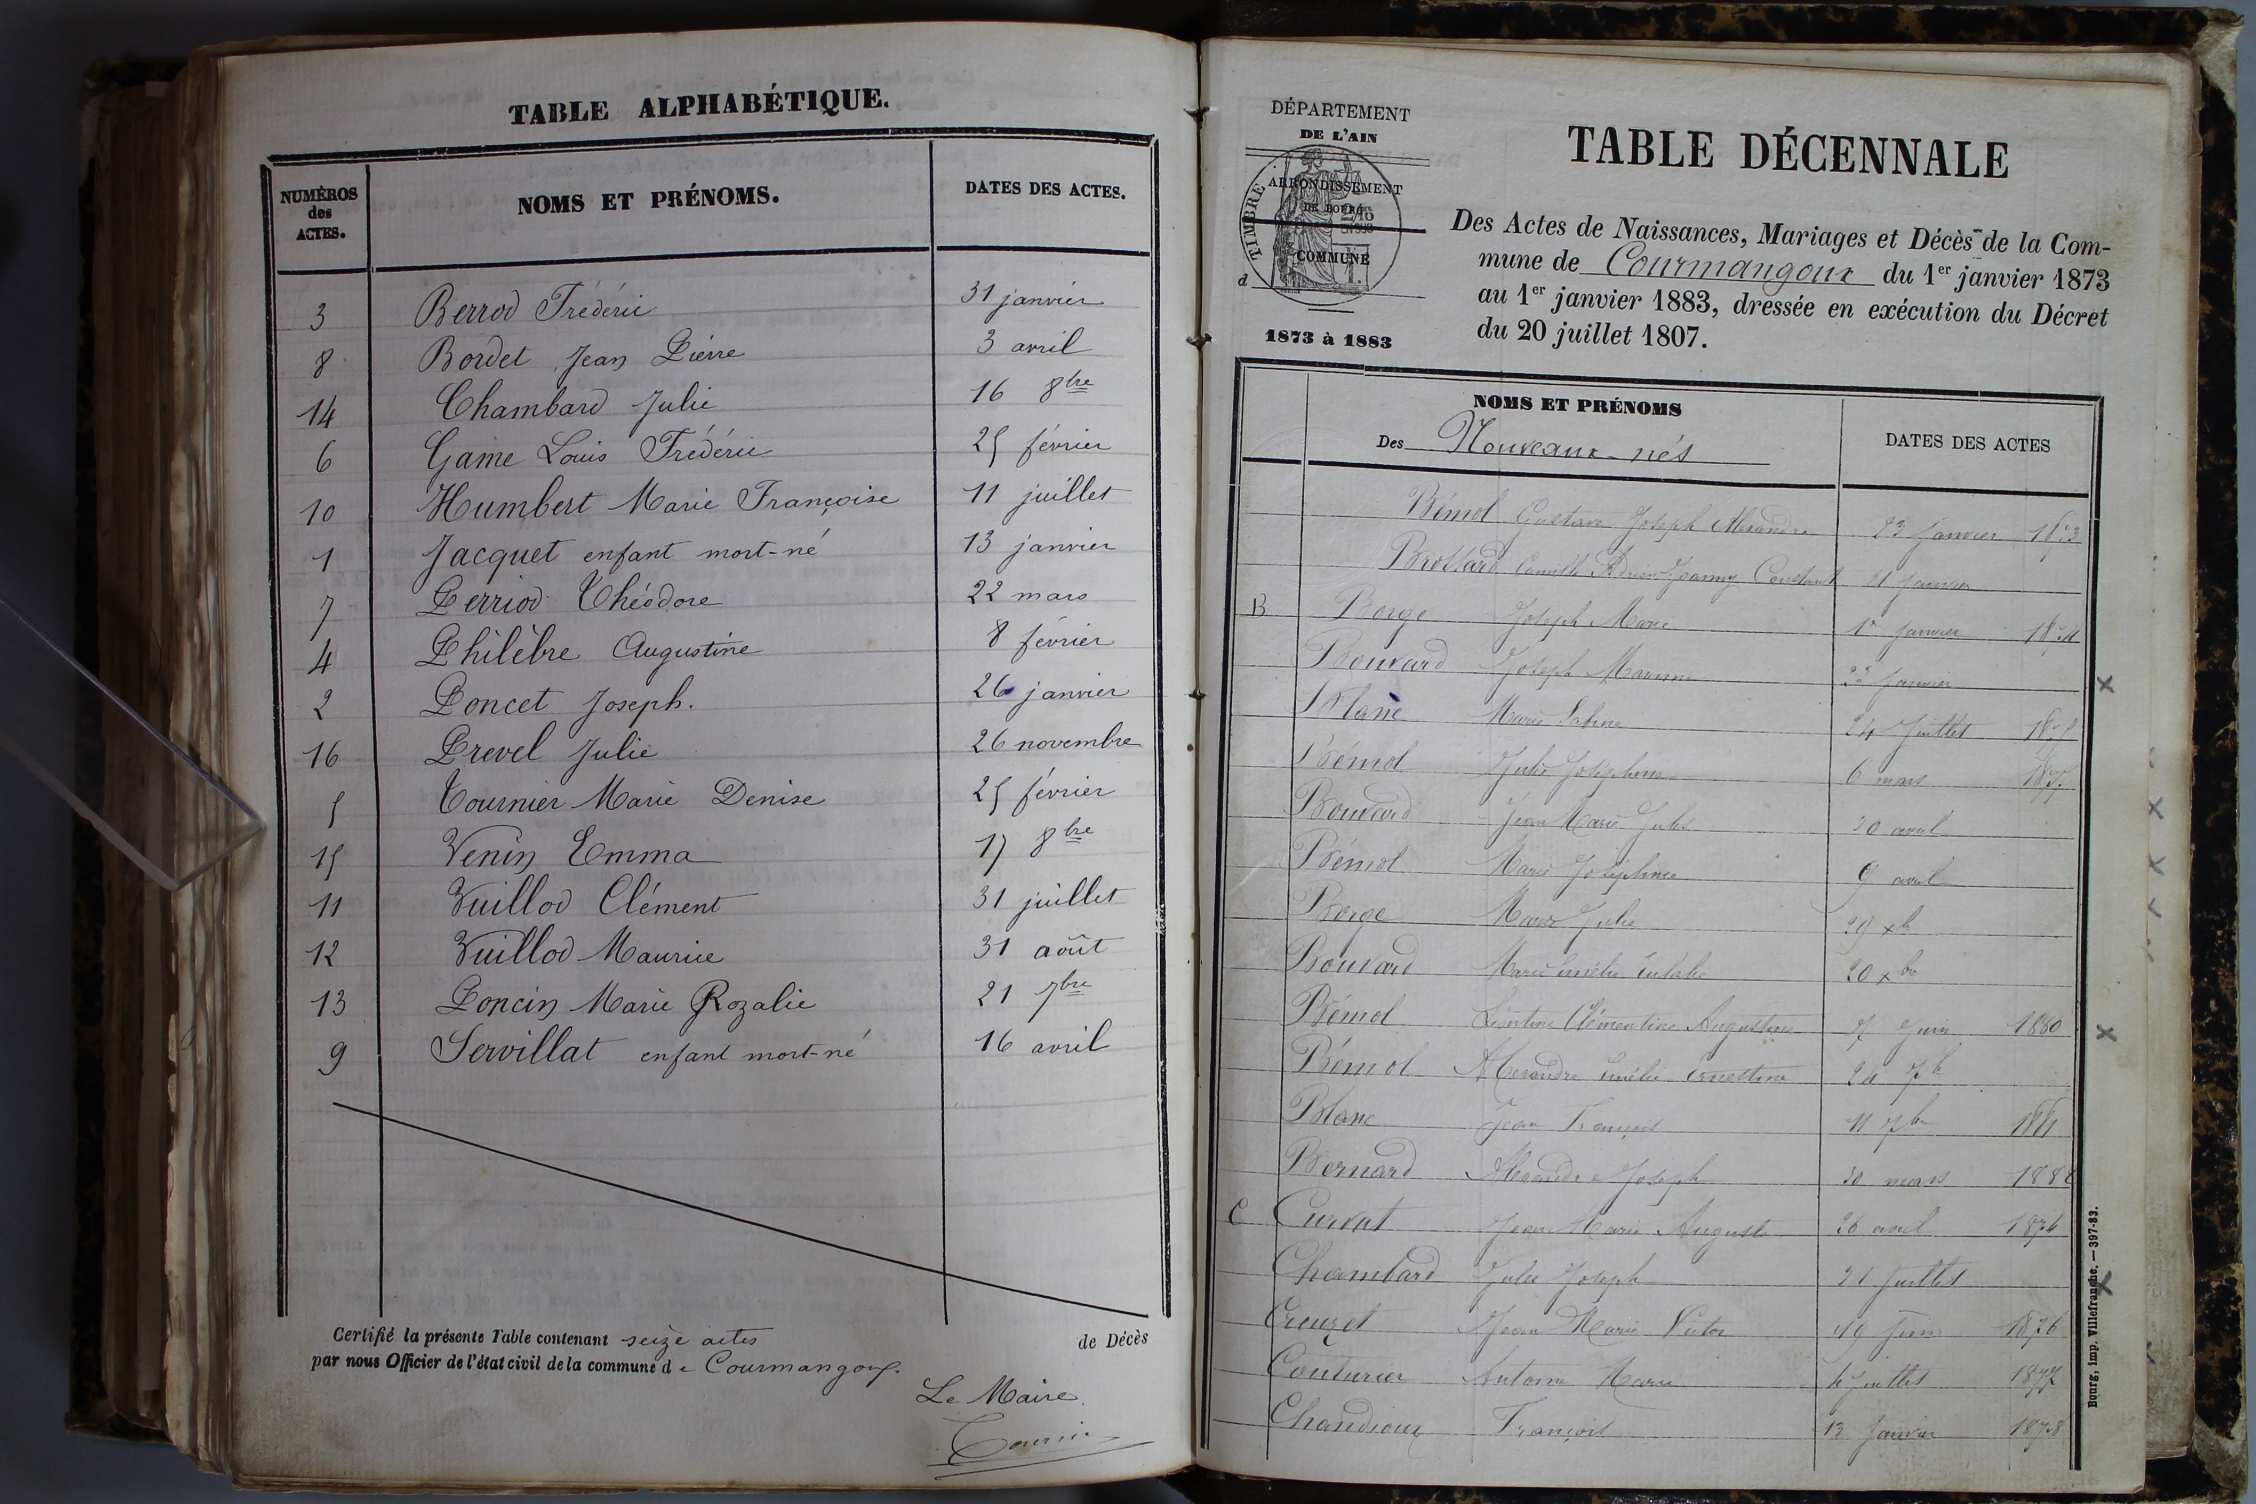 TABLE ALPHABÉTIQUE.
NUMÉROS des ACTES. NOMS ET PRÉNOMS. DATES DES ACTES.
3 Berrod Frédéric 31 janvier
8 Bordet Jean Pierre 3 avril
14 Chambard Julie 16 8bre
6 Game Louis Frédéric 25 février
10 Humbert Marie Françoise 11 juillet
1 Jacquet enfant mort-né 13 janvier
7 Perriod Théodore 22 mars
4 Philèbre Augustine 8 février
2 Poncet Joseph. 26 janvier
16 Prevel Julie 26 novembre
5 Tournier Marie Denise 25 février
15 Venin Emma 17 8bre
11 Vuillod Clément 31 juillet
12 Vuillod Maurice 31 août
13 Poncin Marie Rozalie 21 7bre
9 Servillat enfant mort-né 16 avril
Certifié la présente Table contenant seize actes de Décès
par nous Officier de l'état civil de la commune de Courmangoux.
Le Maire.
DÉPARTEMENT
DE L'AIN
TIMBRE
ARRONDISSEMENT
DE BOURG
COMMUNE
d
1873 à 1883
TABLE DÉCENNALE
Des Actes de Naissances, Mariages et Décès de la Com-
mune de Courmangoux du 1er janvier 1873
au 1er janvier 1883, dressée en exécution du Décret
du 20 juillet 1807.
NOMS ET PRÉNOMS
Des Nouveaux-nés DATES DES ACTES
Bémol Gustave Joseph Alexandre 23 Janvier 1873
Brottard Camille Joanny Constant 21 Janvier
B Borge Joseph Marie 1r Janvier 1874
Bouvard Joseph Marie 23 Janvier
Blanc Marie Sabine 24 Juillet
Bémol Julie Joséphine 6 mars 1877
Bouvard Jean Marie Jules 20 avril
Bémol Marie Joséphine 9 avril
Borge Marie Julie 29 xb
Bouvard Marie Amélie Eulalie 20 xbr
Bémol Léontine Clémentine Augustine 7 Juin 1880
Bémol Alexandre Emélie Ernestine 24 7b
Blanc Jean François 11 7br 1881
Bernard Alexandre Joseph 30 mars 1882
C Curvat Jean Marie Auguste 26 avril 1876
Chambard Jules Joseph 21 Juillet
Creuzet Jean Marie Victor 19 Juin 1876
Couturier Antoine Marie 4 Juillet 1877
Chandioux François 12 Janvier 1878
Bourg, imp. Villefranche. — 397-83.